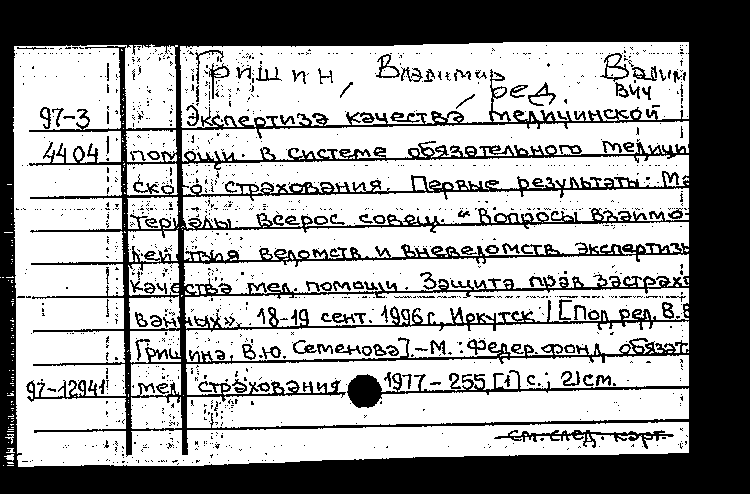 Гришин, Владимир Вадим
вич
, ред.
97-3 Экспертиза качества медицинской
4404 помощи в системе обязательного медицин
ского страхования. Первые результаты: Ма
териалы Всерос совещ. "Вопросы взаимо-
действия ведомств. и вневедомств. экспертизы
качества мед. помощи. Защита прав застрахо
ванных», 18-19 сент. 1996 г., Иркутск / [Под ред. В.В
Гришина, В.Ю. Семенова]. - М. : Федер. фонд обязат.
97-12941 мед. страхования, 1977. - 255, [1] с.; 21 см.
см. след. карт